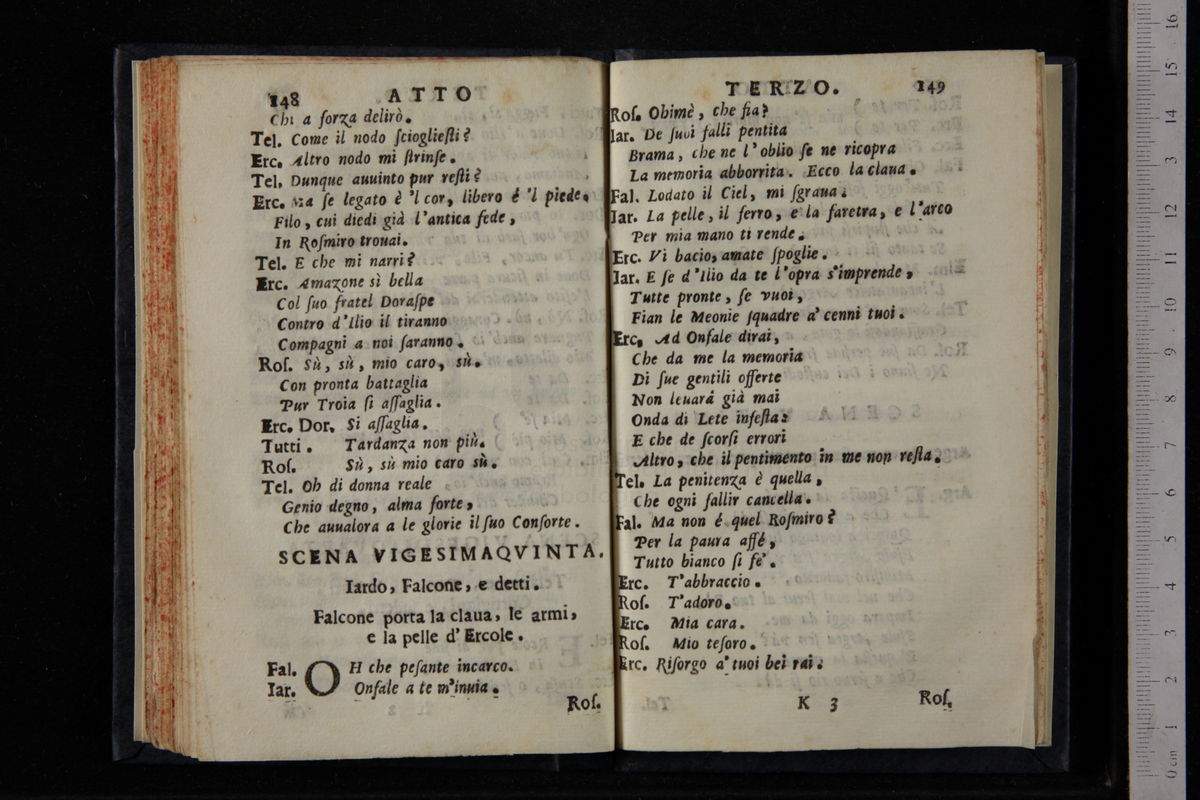 148 ATTO
Chi a forza delirò.
Tel. Come il nodo ſciogliefti?
Erc. Altro nodo mi ſtrinſe.
Tel. Dunque auuinto pur reſti?
Erc. Ma ſe legato è 'l cor, libero é 'l piede.
Filo, cui diedi già l'antica fede,
In Roſmiro trouai.
Tel. E che mi narri?
Erc. Amazone sì bella
Col ſuo fratel Doraſpe
Contro d'Ilio il tiranno
Compagni a noi ſaranno.
Roſ. Sù, sù, mio caro, sù.
Con pronta battaglia
Pur Troia ſi aſſaglia.
Erc. Dor. Si aſſaglia.
Tutti. Tardanza non più.
Roſ. Sù, sù mio caro sù.
Tel. Oh di donna reale
Genio degno, alma forte,
Che auualora a le glorie il ſuo Conſorte.
SCENA VIGESIMAQVINTA.
Iardo, Falcone, e detti.
Falcone porta la claua, le armi,
e la pelle d'Ercole.
Fal. OH che peſante incarco.
Iar. Onfale a te m'inuia.
Roſ.
TERZO. 149
Roſ. Obimè, che fia?
Iar. De ſuoi falli pentita
Brama, che ne l'oblio ſe ne ricopra
La memoria abborrita. Ecco la claua.
Fal. Lodato il Ciel, mi ſgraua.
Iar. La pelle, il ferro, e la faretra, e l'arco
Per mia mano ti rende.
Erc. Vi bacio, amate ſpoglie.
Iar. E ſe d'Ilio da te l'opra s'imprende,
Tutte pronte, ſe vuoi,
Fian le Meonie ſquadre a' cenni tuoi.
Erc. Ad Onfale dirai,
Che da me la memoria
Di ſue gentili offerte
Non leuará già mai
Onda di Lete infeſta:
E che de ſcorſi errori
Altro, che il pentimento in me non reſta.
Tel. La penitenza è quella,
Che ogni fallir cancella.
Fal. Ma non é quel Roſmiro?
Per la paura affé,
Tutto bianco ſi fe'.
Erc. T'abbraccio.
Roſ. T'adoro.
Erc. Mia cara.
Roſ. Mio teſoro.
Erc. Riſorgo a' tuoi bei rai.
K 3 Roſ.
0 cm 1 2 3 4 5 6 7 8 9 10 11 12 13 14 15 16